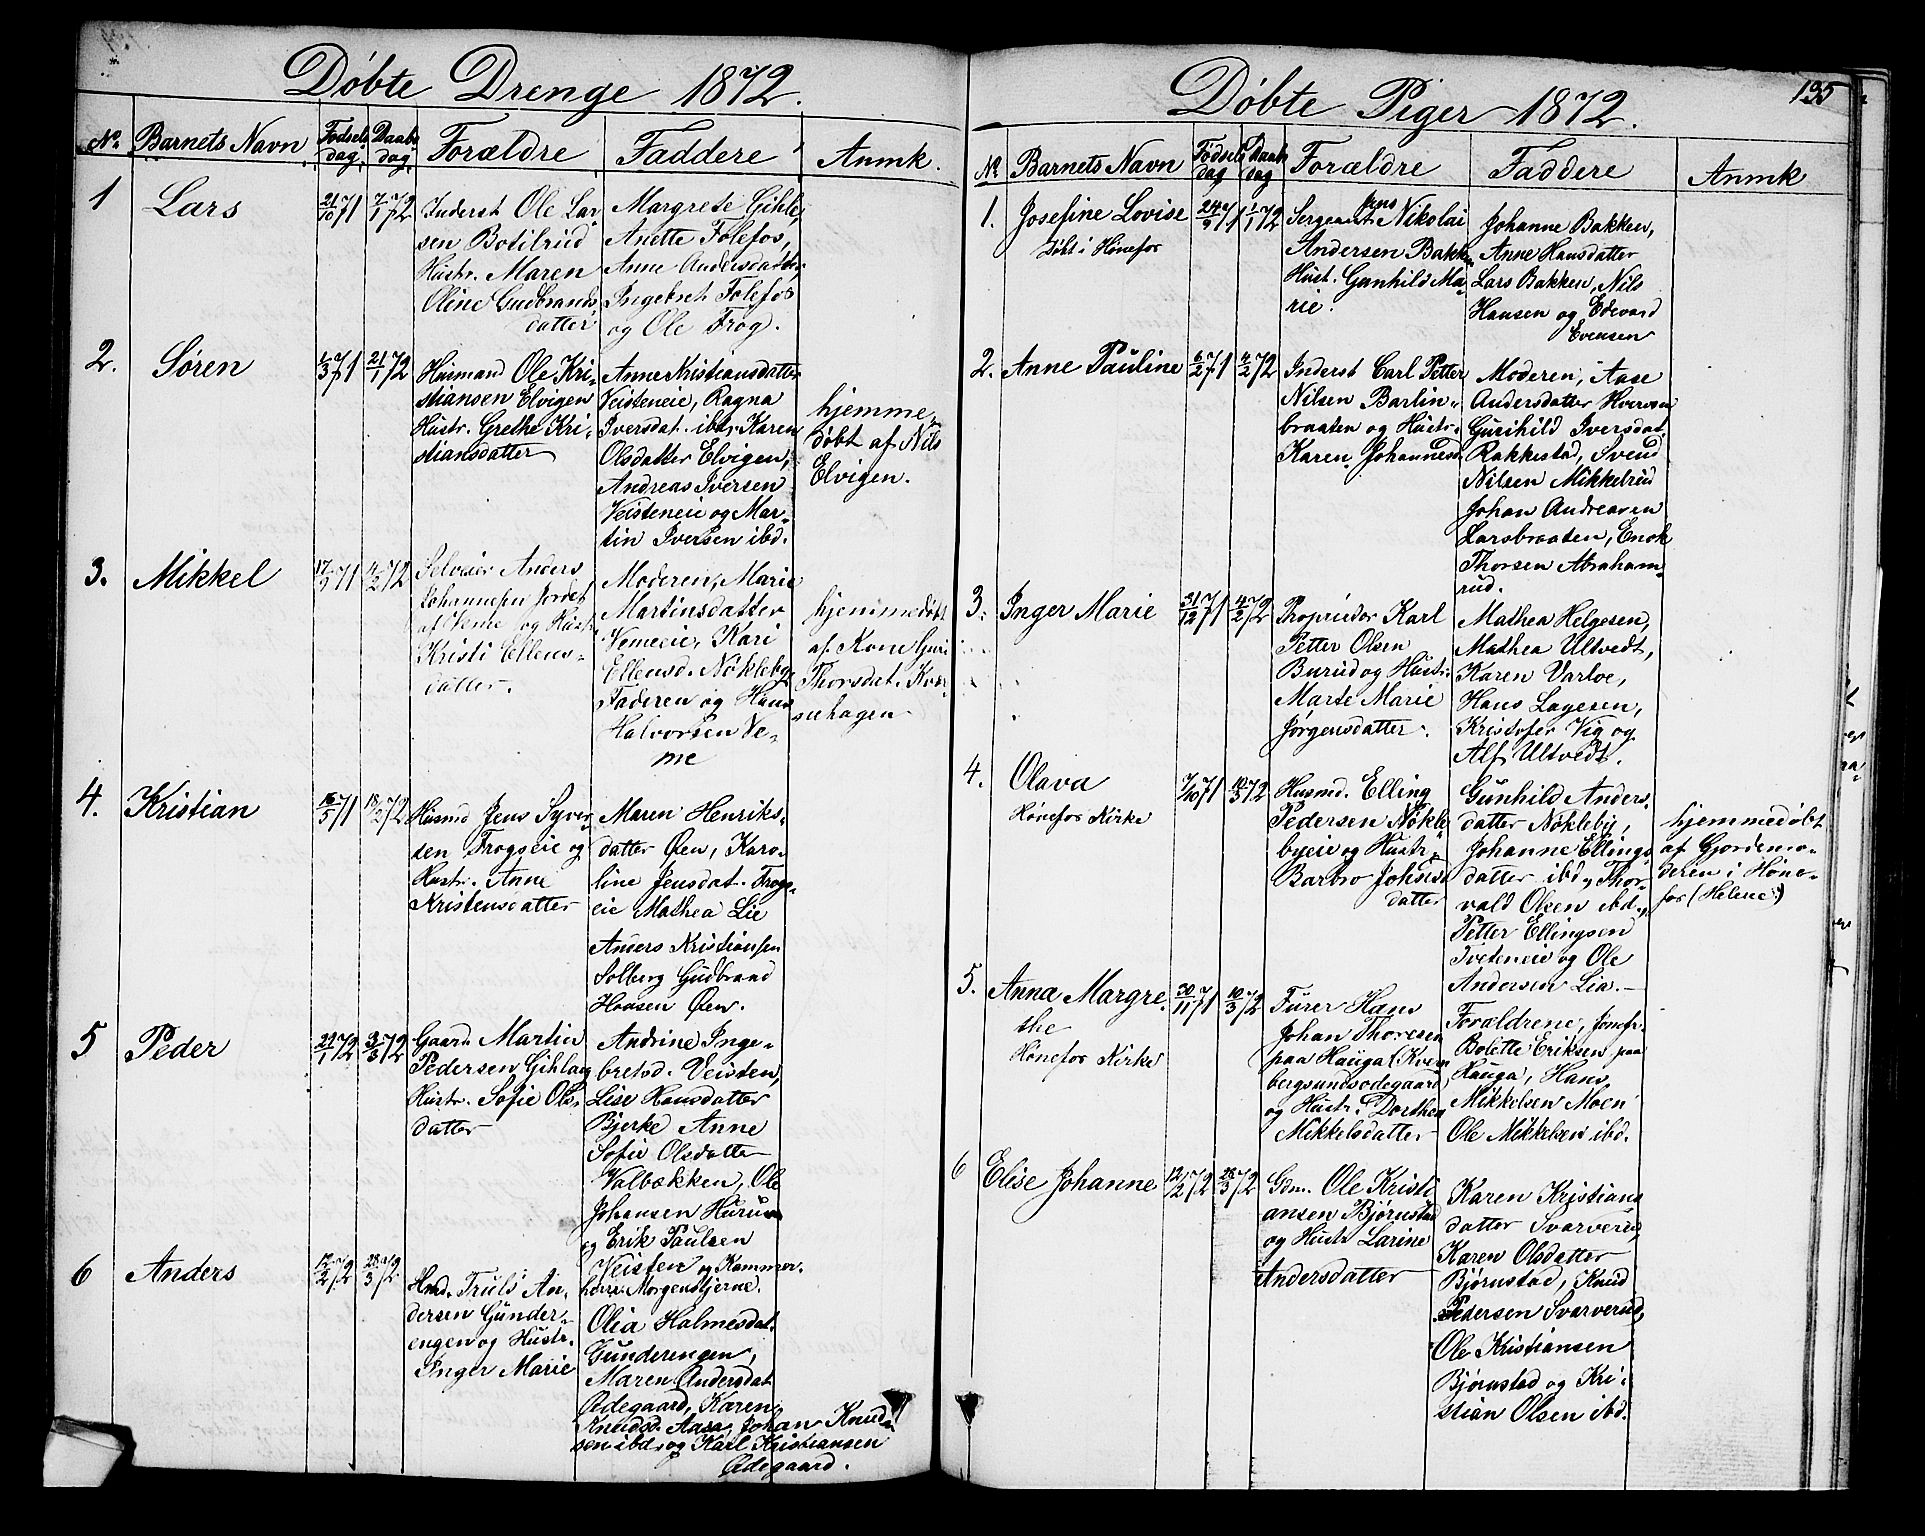 Døbte Drenge 1872.
No. Barnets Navn Fødsels dag. Daabs dag. Forældre Faddere Anmk.
1 Lars 21/10 71 7/1 72
Inderst Ole Lar
sen Botilrud
Hustr. Maren
Oline Gudbrands
datter
Margrete Gihle,
Anette Folefos,
Anne Andersdatter
Ingebret Folefos
og Ole Frog.
2. Søren 1/3 71 21/1 72
Husmand Ole Kri-
stiansen Elvigen
Hustr. Grethe Kri-
stiansdatter
Anne Kristiansdatter
Veisteneie, Ragna
Iversdat. ibd, Karen
Olsdatter Elvigen,
Andreas Iversen
Veisteneie og Mar-
tin Iversen ibd.
hjemme
døbt af Nils
Elvigen.
3. Mikkel 17/5 71 4/2 72
Selveier Anders
Johannesen Jordet
af Veme og Hustr.
Kristi Ellens-
datter.
Moderen, Marie
Martinsdatter
Vemeeie, Kari
Ellensd. Nøkleby,
Faderen og Hans
Halvorsen Ve-
me
hjemmedøbt
af Kone Guri
Thorsdat.
sehagen
4. Kristian 15/5 71 72
Husmd Jens Syver-
sen Frogseie og
Hustr. Anne
Kristensdatter
Maren Henriks-
datter Øen, Karo-
line Jensdat. Frogs-
eie Mathea Lie
Anders Kristiansen
Solberg Gudbrand
Hansen Øen.
5 Peder 22/1 72 3/3 72
Gaard. Martin
Pedersen Gihle og
Hustr. Sofie Ols-
datter
Andrine Inge-
bretsd. Veisten,
Lise Hansdatter
Bjerke Anne
Sofie Olsdatter
Valbækken, Ole
Johansen Hurum
og Erik Paulsen
Veisten og Kammer-
herre Morgenstjerne.
6 Anders 12/2 72 28/3 72
Hmd. Truls An-
dersen Gunder-
engen og Hustr.
Inger Marie
Olia Halmesdat.
Gunderengen,
Maren Andersdat
Ødegaard, Karen
Knudsd. Aasa, Johan Knud-
sen ibd. og Karl Kristiansen
Ødegaard.
Døbte Piger 1872.
195
No Barnets Navn Fødsels dag Daabs dag Forældre Faddere Anmk
1. Josefine Lovise 24/9 71 1/1 72
Døbt i Hønefos
Sergeant Jens Nikolai
Andersen Bakken
Hust. Gunhild Ma-
rie.
Johanne Bakken,
Anne Hansdatter
Lars Bakken, Nils
Hansen og Edevard
Evensen
2. Anne Pauline 6/2 71 4/2 72
Inderst Carl Petter
Nilsen Barlin-
braaten og Hustr.
Karen Johannesd.
Moderen, Aase
Andersdatter Hverven
Gunhild Iversdat
Rakkestad, Svend
Nilsen Mikkelrud
Johan Andreasen
Larsbraaten, Enok
Thorsen Abraham-
rud.
3. Inger Marie 31/12 71 4/2 72
Proprietær Karl
Petter Olsen
Burud og Hustr.
Marte Marie
Jørgensdatter.
Mathea Helgesen,
Mathea Ultvedt,
Karen Varloe,
Hans Lagesen,
Kristofer Vig og
Alf Ultvedt.
4. Olava 7/10 71 10/3 72
Hønefos Kirke
Husmd. Elling
Pedersen Nøkle
byeie og Hustr.
Barbro Johsens
datter
Gunhild Anders-
datter Nøkleby,
Johanne Ellings-
datter ibd, Thor-
vald Olsen ibd.,
Petter Ellingsen
Tveteneie og Ole
Andersen Lia.
hjemmedøbt
af Gjordemo-
deren i Høne-
fos (Helene)
5. Anna Margre- 30/11 71 10/3 72
the
Hønefos Kirke
Furer Hans
Johan Thoresen
paa Hauga (Kvern
bergsundsødegaard)
og Hustr. Dorthea
Mikkelsdatter
Forældrene, Jomfr.
Bolette Eriksen paa
Hauga, Hans
Mikkelsen Moen
Ole Mikkelsen ibd.
6 Elise Johanne 12/2 72 28/3 72
Gdm. Ole Kristi
ansen Bjørnstad
og Hustr Larine
Andersdatter
Karen Kristians
datter Svarverud,
Karen Olsdatter
Bjørnstad, Knud
Pedersen Svarverud,
Ole Kristiansen
Bjørnstad og Kri-
stian Olsen ibd.